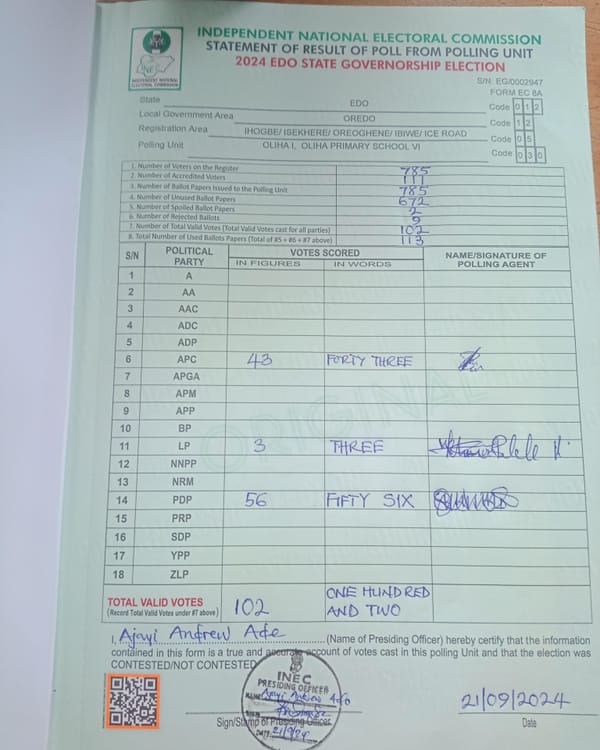 INDEPENDENT NATIONAL ELECTORAL COMMISSION
STATEMENT OF RESULT OF POLL FROM POLLING UNIT
2024 EDO STATE GOVERNORSHIP ELECTION
INEC
INDEPENDENT NATIONAL
ELECTORAL COMMISSION
S/N: EG/0002947
FORM EC 8A
State EDO Code 0 1 2
Local Government Area OREDO Code 1 2
Registration Area IHOGBE/ ISEKHERE/ OREOGHENE/ IBIWE/ ICE ROAD Code 0 5
Polling Unit OLIHA I, OLIHA PRIMARY SCHOOL VI Code 0 3 0
1. Number of Voters on the Register 785
2. Number of Accredited Voters 111
3. Number of Ballot Papers Issued to the Polling Unit 785
4. Number of Unused Ballot Papers 672
5. Number of Spoiled Ballot Papers 2
6. Number of Rejected Ballots 9
7. Number of Total Valid Votes (Total Valid Votes cast for all parties) 102
8. Total Number of Used Ballots Papers (Total of #5 + #6 + #7 above) 113
S/N POLITICAL PARTY VOTES SCORED NAME/SIGNATURE OF POLLING AGENT
IN FIGURES IN WORDS
1 A
2 AA
3 AAC
4 ADC
5 ADP
6 APC 43 FORTY THREE
7 APGA
8 APM
9 APP
10 BP
11 LP 3 THREE
12 NNPP
13 NRM
14 PDP 56 FIFTY SIX
15 PRP
16 SDP
17 YPP
18 ZLP
ORIGINAL
TOTAL VALID VOTES 102 ONE HUNDRED
(Record Total Valid Votes under #7 above) AND TWO
I, Ajayi Andrew Ade (Name of Presiding Officer) hereby certify that the information
contained in this form is a true and accurate account of votes cast in this polling Unit and that the election was
CONTESTED/NOT CONTESTED
INEC
PRESIDING OFFICER
NAME Ajayi Andrew Ade
SIGN
DATE 21/9/24
21/09/2024
Sign/Stamp of Presiding Officer Date